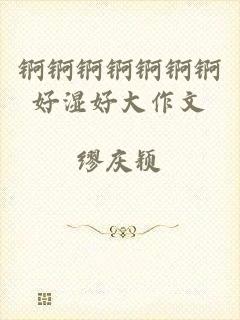 锕锕锕锕锕锕锕
好湿好大作文
缪庆颖